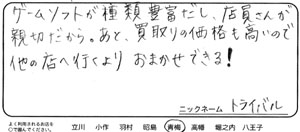 ゲームソフトが種類豊富だし、店員さんが
親切だから。あと、買取りの価格も高いので
他の店へ行くより おまかせできる!
ニックネーム トライバル
よく利用されるお店を
○で囲んでください。
立川 小作 羽村 昭島 青梅 高幡 堀之内 八王子